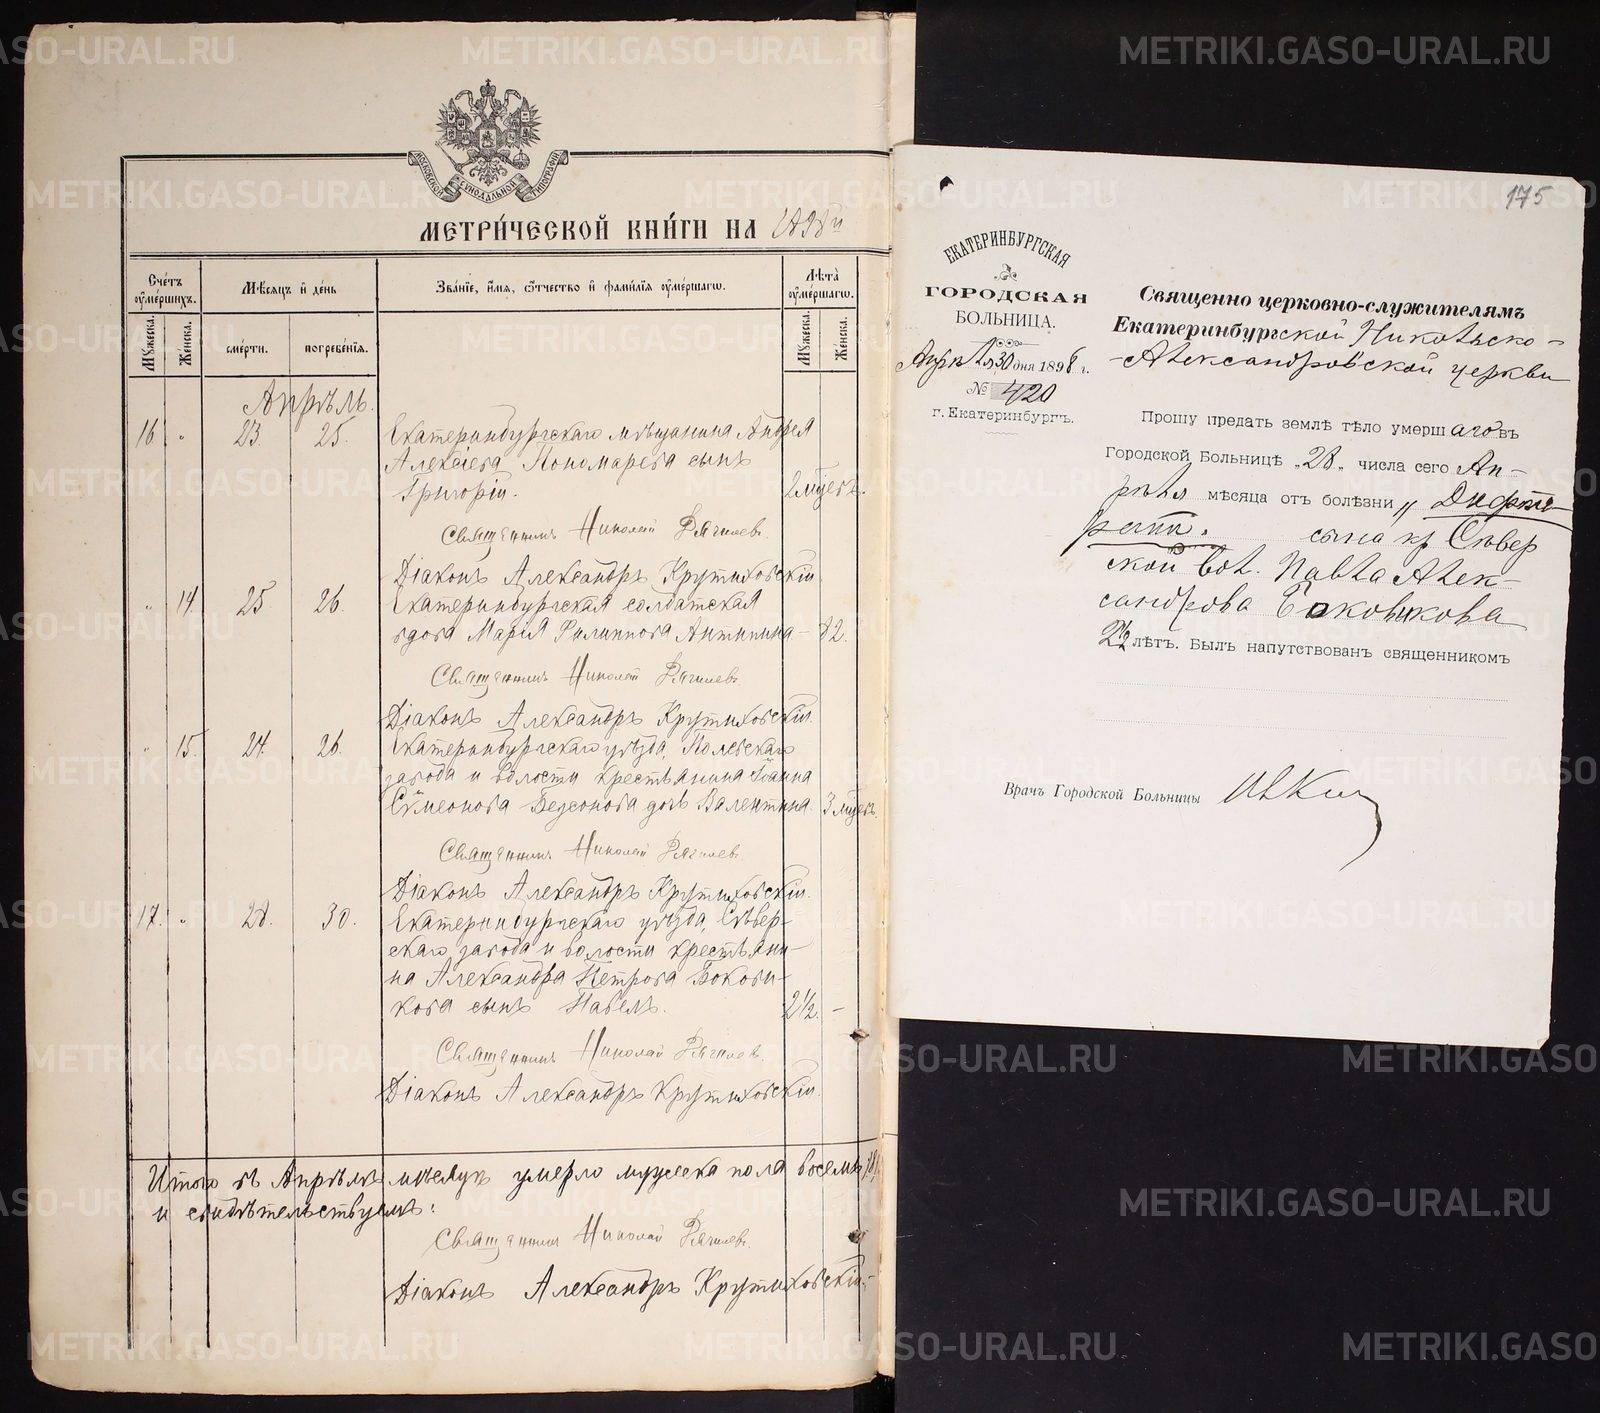 МОСКОВСКОЙ СѴНОДАЛЬНОЙ ТИПОГРАФІИ
МЕТРИ́ЧЕСКОЙ КНИ́ГИ НА 1898й
Счетъ оумершихъ.
Мѣсяцъ и день
Званіе, имя, отчество и фамилія оумершагѡ.
Лѣта оумершагѡ.
Мужеска.
Женска.
смерти.
погребенія.
Мужеска.
Женска.
Апрѣль.
16 " 23. 25. Екатеринбургскаго мѣщанина Андрея
Алексіева Пономарева сынъ
Григорій. 2 мцевъ.
Священникъ Николай
Діаконъ Александръ Крутиховскій
" 14 25. 26. Екатеринбургская солдатская
вдова Марія Филиппова Антипина – 82.
Священникъ Николай
Діаконъ Александръ Крутиховскій.
" 15. 24. 26. Екатеринбургскаго уѣзда, Полевскаго
завода и волости крестьянина Іоанна
Сѵмеонова Безсонова дочь Валентина. 3 мцевъ.
Священникъ Николай
Діаконъ Александръ Крутиховскій.
17. " 28. 30. Екатеринбургскаго уѣзда, Сѣвер-
скаго завода и волости крестьяни-
на Александра Петрова Бокови-
кова сынъ Павелъ. 2 1/2. –
Священникъ Николай
Діаконъ Александръ Крутиховскій.
Итого въ Апрѣлѣ мѣсяцѣ умерло мужеска пола восемь
и свидѣтельствуемъ:
Священникъ Николай
Діаконъ Александръ Крутиховскій.
175
ЕКАТЕРИНБУРГСКАЯ
ГОРОДСКАЯ
БОЛЬНИЦА.
Апрѣля 30 дня 1898 г.
№ 420
г. Екатеринбургъ.
Священно церковно-служителямъ
Екатеринбургской Никольско-
-Александровской церкви
Прошу предать землѣ тѣло умершаго въ
Городской Больницѣ „28„ числа сего Ап-
рѣля мѣсяца отъ болѣзни „ Дифте-
рита. сына кр Сѣвер
ской вол. Павла Алек-
сандрова Боковикова
2 1/2 лѣтъ. Былъ напутствованъ священникомъ
Врачъ Городской Больницы
METRIKI.GASO-URAL.RU